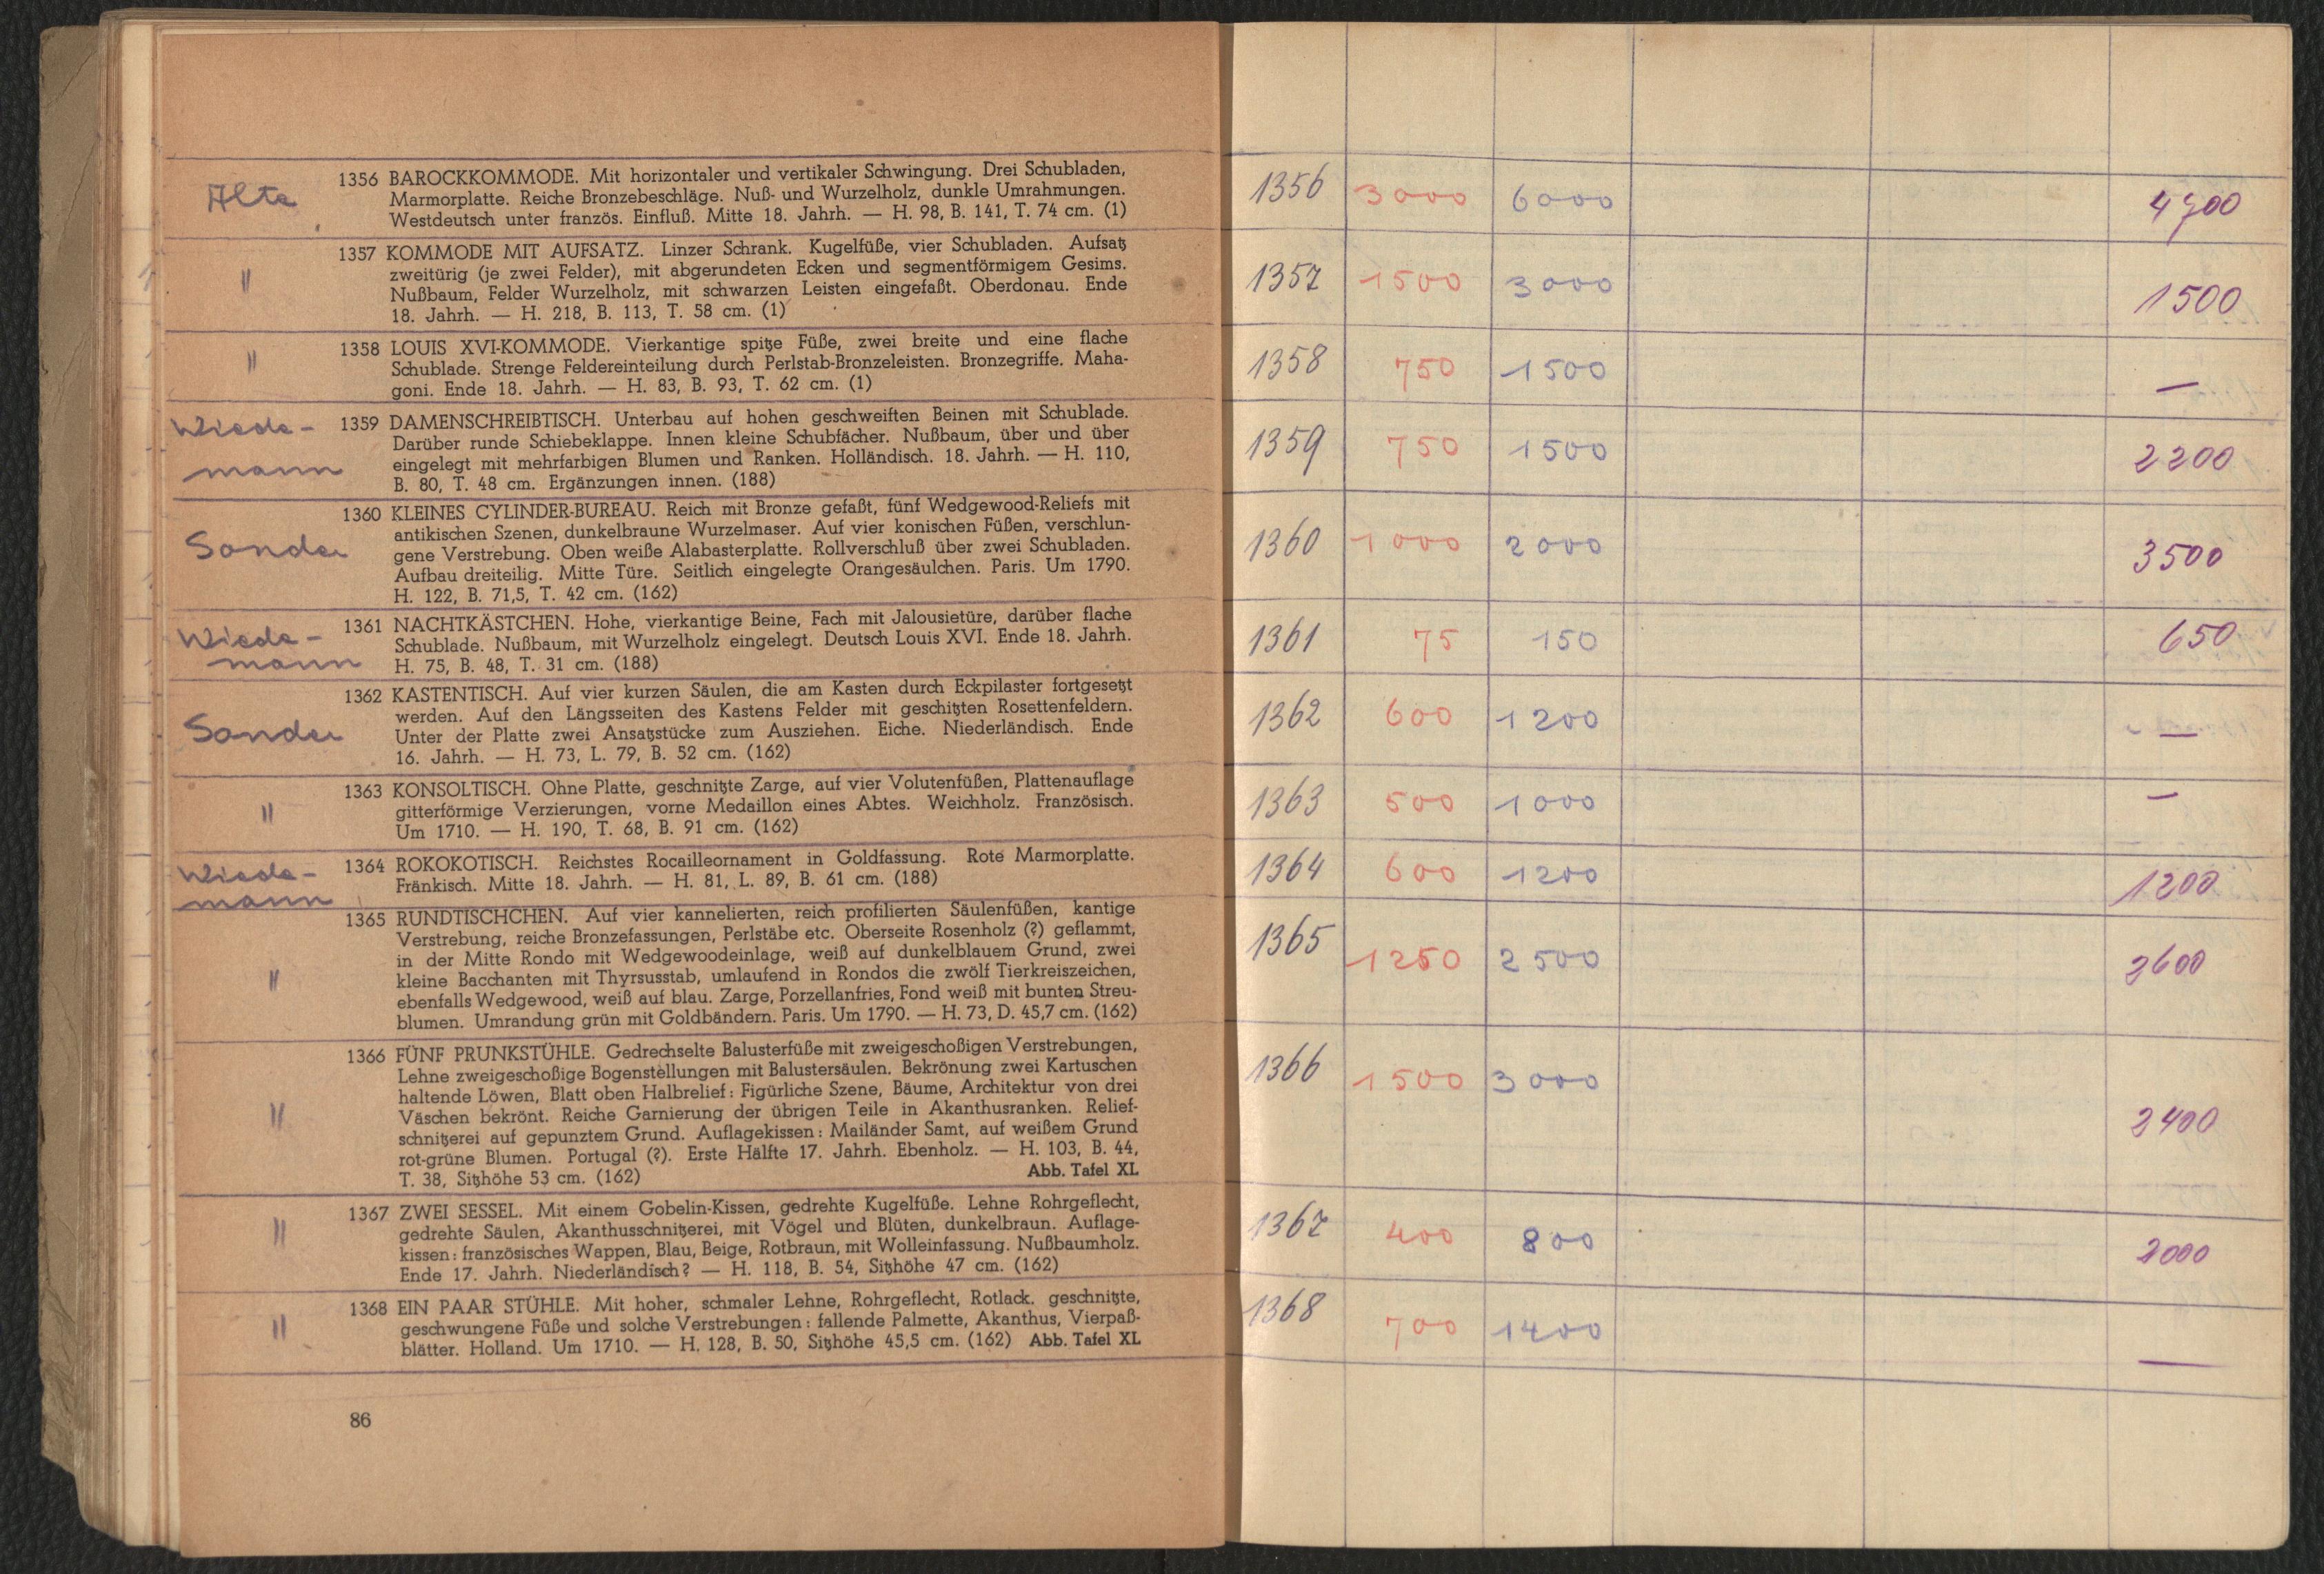 Alte
1356 BAROCKKOMMODE. Mit horizontaler und vertikaler Schwingung. Drei Schubladen,
Marmorplatte. Reiche Bronzebeschläge. Nuß- und Wurzelholz, dunkle Umrahmungen.
Westdeutsch unter französ. Einfluß. Mitte 18. Jahrh. — H. 98, B. 141, T. 74 cm. (1)
"
1357 KOMMODE MIT AUFSATZ. Linzer Schrank. Kugelfüße, vier Schubladen. Aufsatz
zweitürig (je zwei Felder), mit abgerundeten Ecken und segmentförmigem Gesims.
Nußbaum, Felder Wurzelholz, mit schwarzen Leisten eingefaßt. Oberdonau. Ende
18. Jahrh. — H. 218, B. 113, T. 58 cm. (1)
"
1358 LOUIS XVI-KOMMODE. Vierkantige spitze Füße, zwei breite und eine flache
Schublade. Strenge Feldereinteilung durch Perlstab-Bronzeleisten. Bronzegriffe. Maha-
goni. Ende 18. Jahrh. — H. 83, B. 93, T. 62 cm. (1)
Wiede-
mann
1359 DAMENSCHREIBTISCH. Unterbau auf hohen geschweiften Beinen mit Schublade.
Darüber runde Schiebeklappe. Innen kleine Schubfächer. Nußbaum, über und über
eingelegt mit mehrfarbigen Blumen und Ranken. Holländisch. 18. Jahrh. — H. 110,
B. 80, T. 48 cm. Ergänzungen innen. (188)
Sander
1360 KLEINES CYLINDER-BUREAU. Reich mit Bronze gefaßt, fünf Wedgewood-Reliefs mit
antikischen Szenen, dunkelbraune Wurzelmaser. Auf vier konischen Füßen, verschlun-
gene Verstrebung. Oben weiße Alabasterplatte. Rollverschluß über zwei Schubladen.
Aufbau dreiteilig. Mitte Türe. Seitlich eingelegte Orangesäulchen. Paris. Um 1790.
H. 122, B. 71,5, T. 42 cm. (162)
Wiede-
mann
1361 NACHTKÄSTCHEN. Hohe, vierkantige Beine, Fach mit Jalousietüre, darüber flache
Schublade. Nußbaum, mit Wurzelholz eingelegt. Deutsch Louis XVI. Ende 18. Jahrh.
H. 75, B. 48, T. 31 cm. (188)
Sander
1362 KASTENTISCH. Auf vier kurzen Säulen, die am Kasten durch Eckpilaster fortgesetzt
werden. Auf den Längsseiten des Kastens Felder mit geschitzten Rosettenfeldern.
Unter der Platte zwei Ansatzstücke zum Ausziehen. Eiche. Niederländisch. Ende
16. Jahrh. — H. 73, L. 79, B. 52 cm. (162)
"
1363 KONSOLTISCH. Ohne Platte, geschnitzte Zarge, auf vier Volutenfüßen, Plattenauflage
gitterförmige Verzierungen, vorne Medaillon eines Abtes. Weichholz. Französisch.
Um 1710. — H. 190, T. 68, B. 91 cm. (162)
Wiede-
mann
1364 ROKOKOTISCH. Reichstes Rocailleornament in Goldfassung. Rote Marmorplatte.
Fränkisch. Mitte 18. Jahrh. — H. 81, L. 89, B. 61 cm. (188)
"
1365 RUNDTISCHCHEN. Auf vier kannelierten, reich profilierten Säulenfüßen, kantige
Verstrebung, reiche Bronzefassungen, Perlstäbe etc. Oberseite Rosenholz (?) geflammt,
in der Mitte Rondo mit Wedgewoodeinlage, weiß auf dunkelblauem Grund, zwei
kleine Bacchanten mit Thyrsusstab, umlaufend in Rondos die zwölf Tierkreiszeichen,
ebenfalls Wedgewood, weiß auf blau. Zarge, Porzellanfries, Fond weiß mit bunten Streu-
blumen. Umrandung grün mit Goldbändern. Paris. Um 1790. — H. 73, D. 45,7 cm. (162)
"
1366 FÜNF PRUNKSTÜHLE. Gedrechselte Balusterfüße mit zweigeschoßigen Verstrebungen,
Lehne zweigeschoßige Bogenstellungen mit Balustersäulen. Bekrönung zwei Kartuschen
haltende Löwen, Blatt oben Halbrelief: Figürliche Szene, Bäume, Architektur von drei
Väschen bekrönt. Reiche Garnierung der übrigen Teile in Akanthusranken. Relief-
schnitzerei auf gepunztem Grund. Auflagekissen: Mailänder Samt, auf weißem Grund
rot-grüne Blumen. Portugal (?). Erste Hälfte 17. Jahrh. Ebenholz. — H. 103, B. 44,
T. 38, Sitzhöhe 53 cm. (162) Abb. Tafel XL
"
1367 ZWEI SESSEL. Mit einem Gobelin-Kissen, gedrehte Kugelfüße. Lehne Rohrgeflecht,
gedrehte Säulen, Akanthusschnitzerei, mit Vögel und Blüten, dunkelbraun. Auflage-
kissen: französisches Wappen, Blau, Beige, Rotbraun, mit Wolleinfassung. Nußbaumholz.
Ende 17. Jahrh. Niederländisch? — H. 118, B. 54, Sitzhöhe 47 cm. (162)
"
1368 EIN PAAR STÜHLE. Mit hoher, schmaler Lehne, Rohrgeflecht, Rotlack, geschnitzte,
geschwungene Füße und solche Verstrebungen: fallende Palmette, Akanthus, Vierpaß-
blätter. Holland. Um 1710. — H. 128, B. 50, Sitzhöhe 45,5 cm. (162) Abb. Tafel XL
86
1356 3000 6000
1357 1500 3000 1500
1358 750 1500 —
1359 750 1500 2200
1360 1000 2000 3500
1361 75 150 650
1362 600 1200 —
1363 500 1000 —
1364 600 1200 1200
1365 1250 2500 2600
1366 1500 3000 2400
1367 400 800 2000
1368 700 1400 —